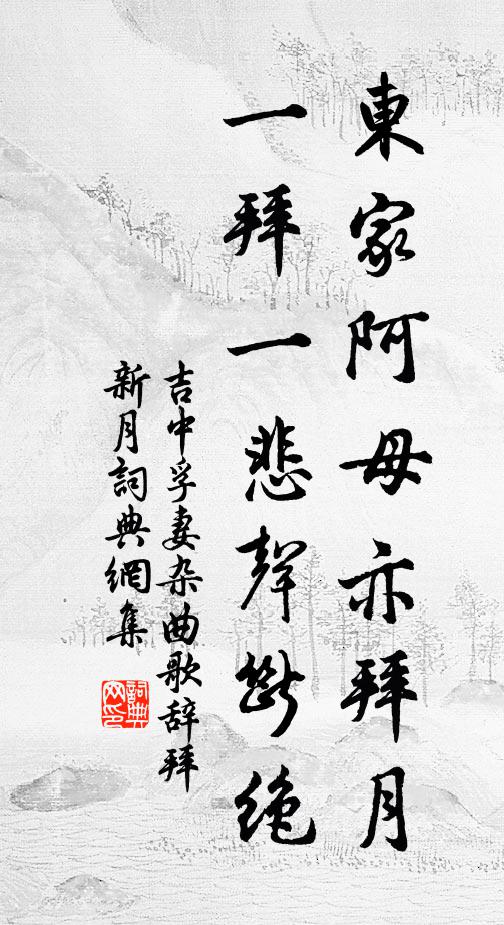 東家阿母亦拜月
一拜一悲聲斷絕
吉中孚妻杂曲歌辞拜
新月詞典網集
詞典
网印